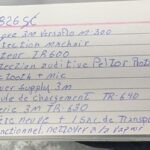 826 SC
3M Versaflo M-300
tection Machair
teur TR600
tection auditive Peltor
tooth + Mic
wer Supply 3M
de de chargement TR-640
erie 3M TR-630
Neuf + 1 Sac de Transp
nctionnel nettoyer à la vapeur